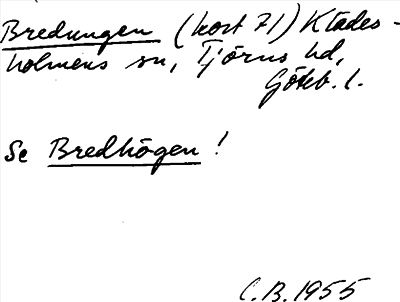 Bredungen (kort 71) Klädes-
holmens sn, Tjörns hd,
Göteb. l.
Se Bredhögen!
C.B. 1955